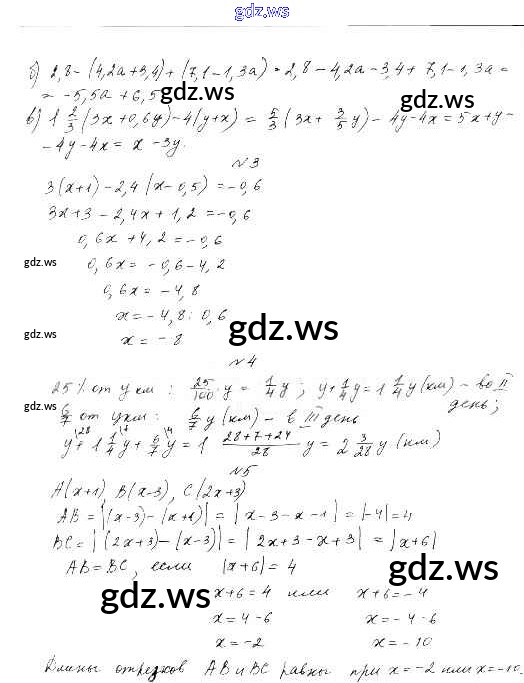 gdz.ws
б) 2,8-(4,2a+3,4)+(7,1-1,3a)=2,8-4,2a-3,4+7,1-1,3a=
=-5,5a+6,5
gdz.ws
gdz.ws
в) 1 2/3 (3x+0,6y)-4(y+x) = 5/3 (3x+ 3/5 y)-4y-4x=5x+y-
-4y-4x= x-3y.
№3
3(x+1)-2,4(x-0,5)=-0,6
3x+3-2,4x+1,2=-0,6
0,6x+4,2=-0,6
gdz.ws
0,6x=-0,6-4,2
0,6x=-4,8
x=-4,8:0,6
gdz.ws
gdz.ws
x=-8
№4
25% от y км: 25/100·y = 1/4 y; y+1/4 y=1 1/4 y (км) - во II
день;
6/7 от y км: 6/7 y (км) - в III день
y\28+1 1/4\7 y+6/7\4 y=1 (28+7+24)/28 y=2 3/28 y (км)
№5
A(x+1), B(x-3), C(2x+3)
AB=|(x-3)-(x+1)|=|x-3-x-1|=|-4|=4
BC=|(2x+3)-(x-3)|=|2x+3-x+3|=|x+6|
AB=BC, если |x+6|=4
gdz.ws
gdz.ws
x+6=4 или x+6=-4
x=4-6 x=-4-6
x=-2 x=-10
Длины отрезков AB и BC равны при x=-2 или x=-10.